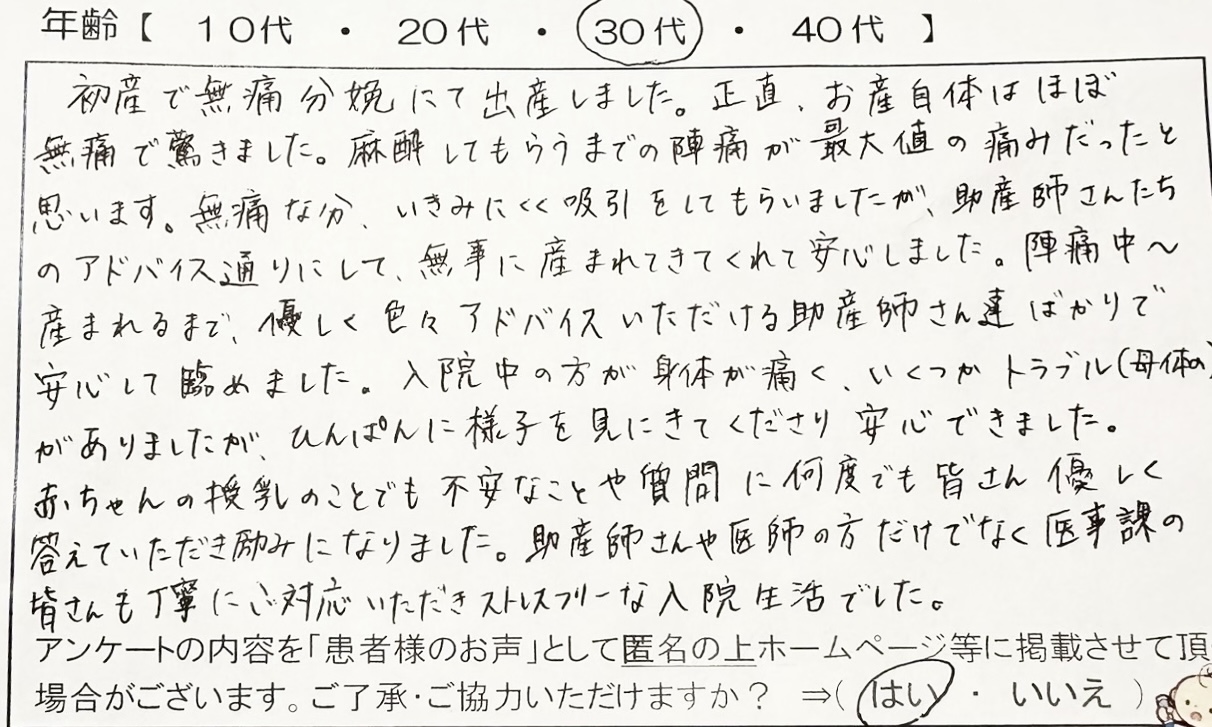 年齢【 10代 ・ 20代 ・ 30代 ・ 40代 】
初産で無痛分娩にて出産しました。正直、お産自体はほぼ
無痛で驚きました。麻酔してもらうまでの陣痛が最大値の痛みだったと
思います。無痛な分、いきみにくく吸引をしてもらいましたが、助産師さんたち
のアドバイス通りにして、無事に産まれてきてくれて安心しました。陣痛中〜
産まれるまで、優しく色々アドバイスいただける助産師さん達ばかりで
安心して臨めました。入院中の方が身体が痛く、いくつかトラブル(母体の)
がありましたが、ひんぱんに様子を見にきてくださり安心できました。
赤ちゃんの授乳のことでも不安なことや質問に何度でも皆さん優しく
答えていただき励みになりました。助産師さんや医師の方だけでなく医事課の
皆さんも丁寧にご対応いただきストレスフリーな入院生活でした。
アンケートの内容を「患者様のお声」として匿名の上ホームページ等に掲載させて頂
場合がございます。ご了承・ご協力いただけますか？ ⇒( はい ・ いいえ )